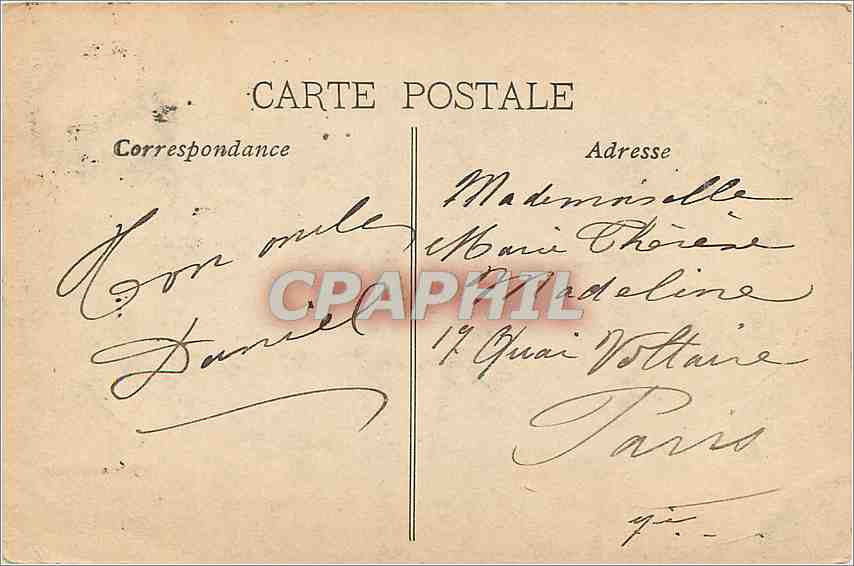 CARTE POSTALE
Correspondance
Ton oncle
Daniel
Adresse
Mademoiselle
Marie Thérèse
Madeline
17 Quai Voltaire
Paris
CPAPHIL